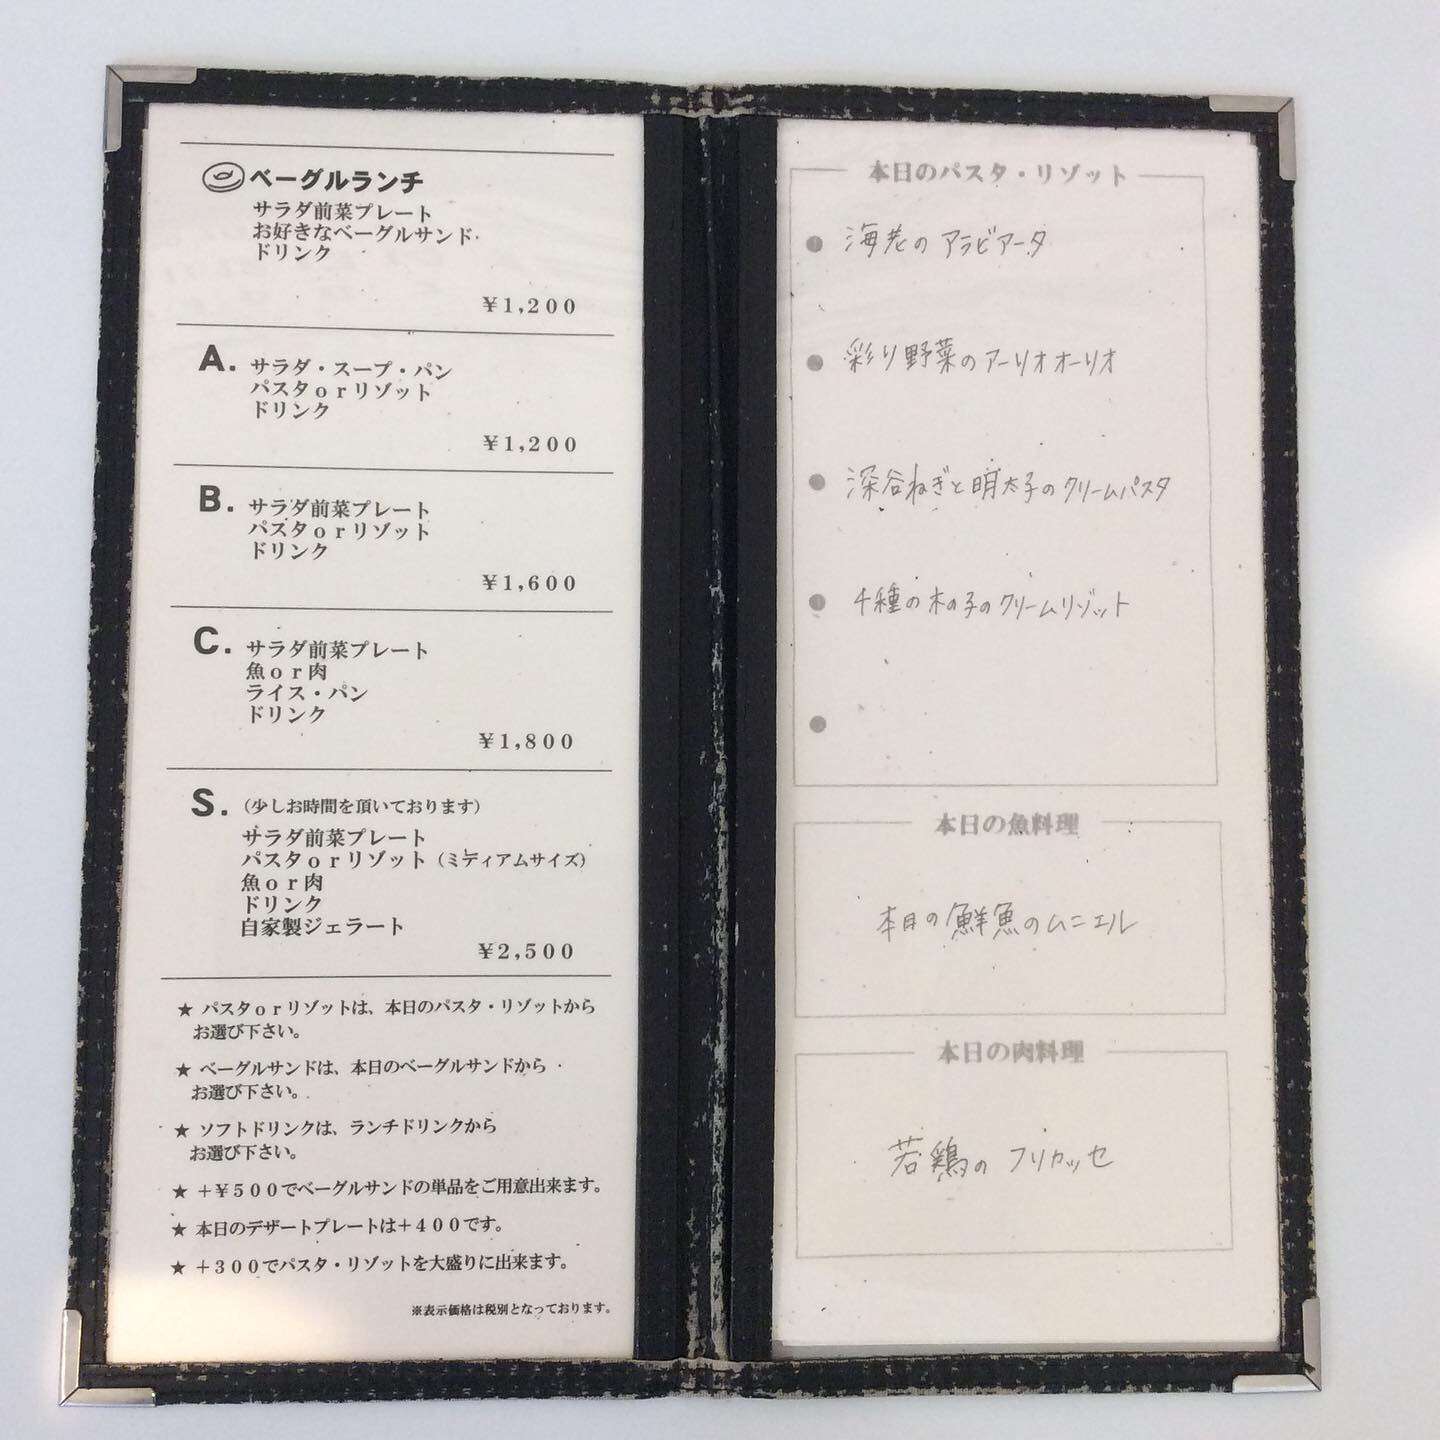 ベーグルランチ
サラダ前菜プレート
お好きなベーグルサンド
ドリンク
¥1,200
A. サラダ・スープ・パン
パスタorリゾット
ドリンク
¥1,200
B. サラダ前菜プレート
パスタorリゾット
ドリンク
¥1,600
C. サラダ前菜プレート
魚or肉
ライス・パン
ドリンク
¥1,800
S. (少しお時間を頂いております)
サラダ前菜プレート
パスタorリゾット(ミディアムサイズ)
魚or肉
ドリンク
自家製ジェラート
¥2,500
★ パスタorリゾットは、本日のパスタ・リゾットから
お選び下さい。
★ ベーグルサンドは、本日のベーグルサンドから
お選び下さい。
★ ソフトドリンクは、ランチドリンクから
お選び下さい。
★ +¥500でベーグルサンドの単品をご用意出来ます。
★ 本日のデザートプレートは+400です。
★ +300でパスタ・リゾットを大盛りに出来ます。
※表示価格は税別となっております。
本日のパスタ・リゾット
● 海老のアラビアータ
● 彩り野菜のアーリオオーリオ
● 深谷ねぎと明太子のクリームパスタ
● 4種の木の子のクリームリゾット
●
本日の魚料理
本日の鮮魚のムニエル
本日の肉料理
若鶏のフリカッセ